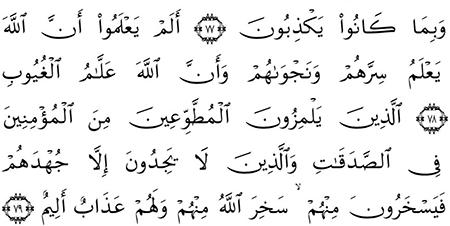 وَبِمَا كَانُوا۟ يَكْذِبُونَ ﴿٧٧﴾ أَلَمْ يَعْلَمُوا۟ أَنَّ ٱللَّهَ
يَعْلَمُ سِرَّهُمْ وَنَجْوَىٰهُمْ وَأَنَّ ٱللَّهَ عَلَّٰمُ ٱلْغُيُوبِ
﴿٧٨﴾ ٱلَّذِينَ يَلْمِزُونَ ٱلْمُطَّوِّعِينَ مِنَ ٱلْمُؤْمِنِينَ
فِى ٱلصَّدَقَٰتِ وَٱلَّذِينَ لَا يَجِدُونَ إِلَّا جُهْدَهُمْ
فَيَسْخَرُونَ مِنْهُمْ ۙ سَخِرَ ٱللَّهُ مِنْهُمْ وَلَهُمْ عَذَابٌ أَلِيمٌ ﴿٧٩﴾